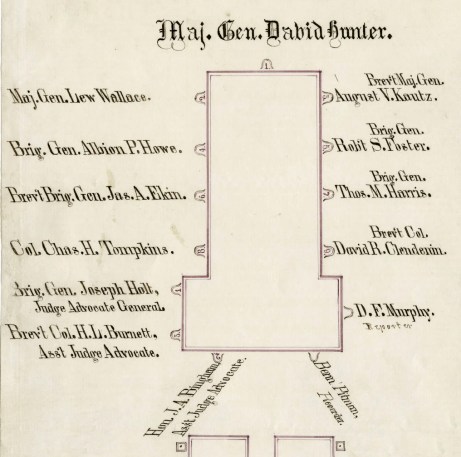 Maj. Gen. David Hunter.
1
Maj. Gen. Lew Wallace.
2
3
Brev't Maj. Gen.
August V. Kautz.
Brig. Gen. Albion P. Howe.
4
5
Brig. Gen.
Rob't S. Foster.
Brev't Brig. Gen. Jas. A. Ekin.
6
7
Brig. Gen.
Thos. M. Harris.
Col. Chas. H. Tompkins.
8
Brev't Col.
David R. Clendenin.
Brig. Gen. Joseph Holt,
Judge Advocate General.
D. F. Murphy.
Reporter
Brev't Col. H. L. Burnett,
Ass't Judge Advocate.
Hon. J. A. Bingham
Ass't Judge Advocate.
Benn Pitman,
Recorder.